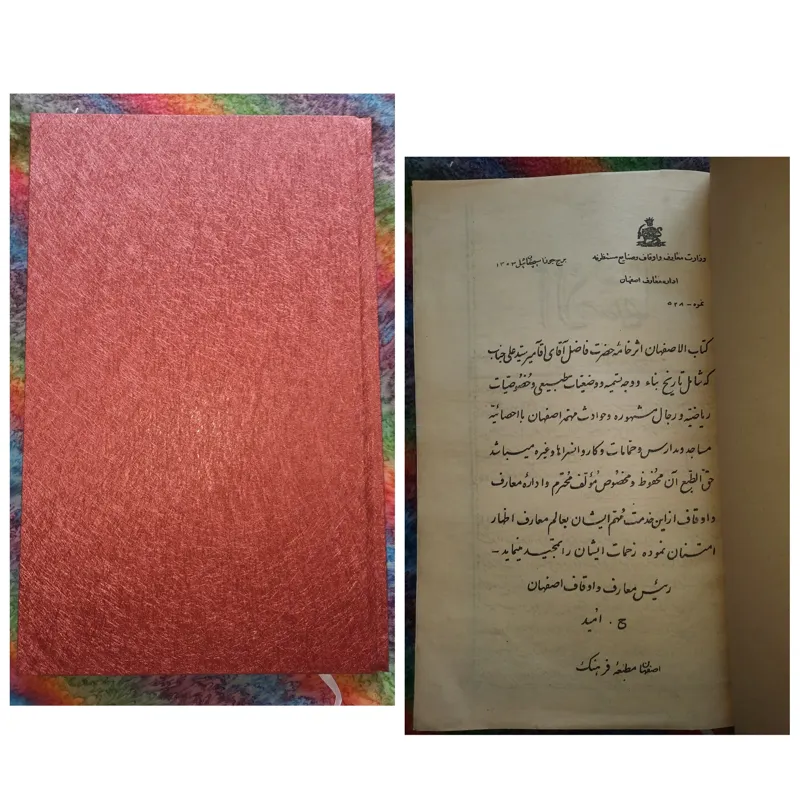 وزارت معارف و اوقاف و صنایع مستظرفه
برج جوزا سیچقان ئیل ۱۳۰۳
اداره معارف اصفهان
نمره - ۵۲۸
کتاب الاصفهان اثر خامهٔ حضرت فاضل آقای آقامیر سید علی جناب
که شامل تاریخ بناء و وجه تسمیه و وضعیات طبیعی و خصوصیات
ریاضیه و رجال مشهوره و حوادث مهمه اصفهان با احصائیه
مساجد و مدارس و حمامات و کاروانسراها و غیره میباشد
حق الطبع آن محفوظ و مخصوص مؤلف محترم و ادارهٔ معارف
و اوقاف از این خدمت مهم ایشان بعالم معارف اظهار
امتنان نموده زحمات ایشان را تمجید مینماید -
رئیس معارف و اوقاف اصفهان
ج . امید
اصفهان مطبعهٔ فرهنگ